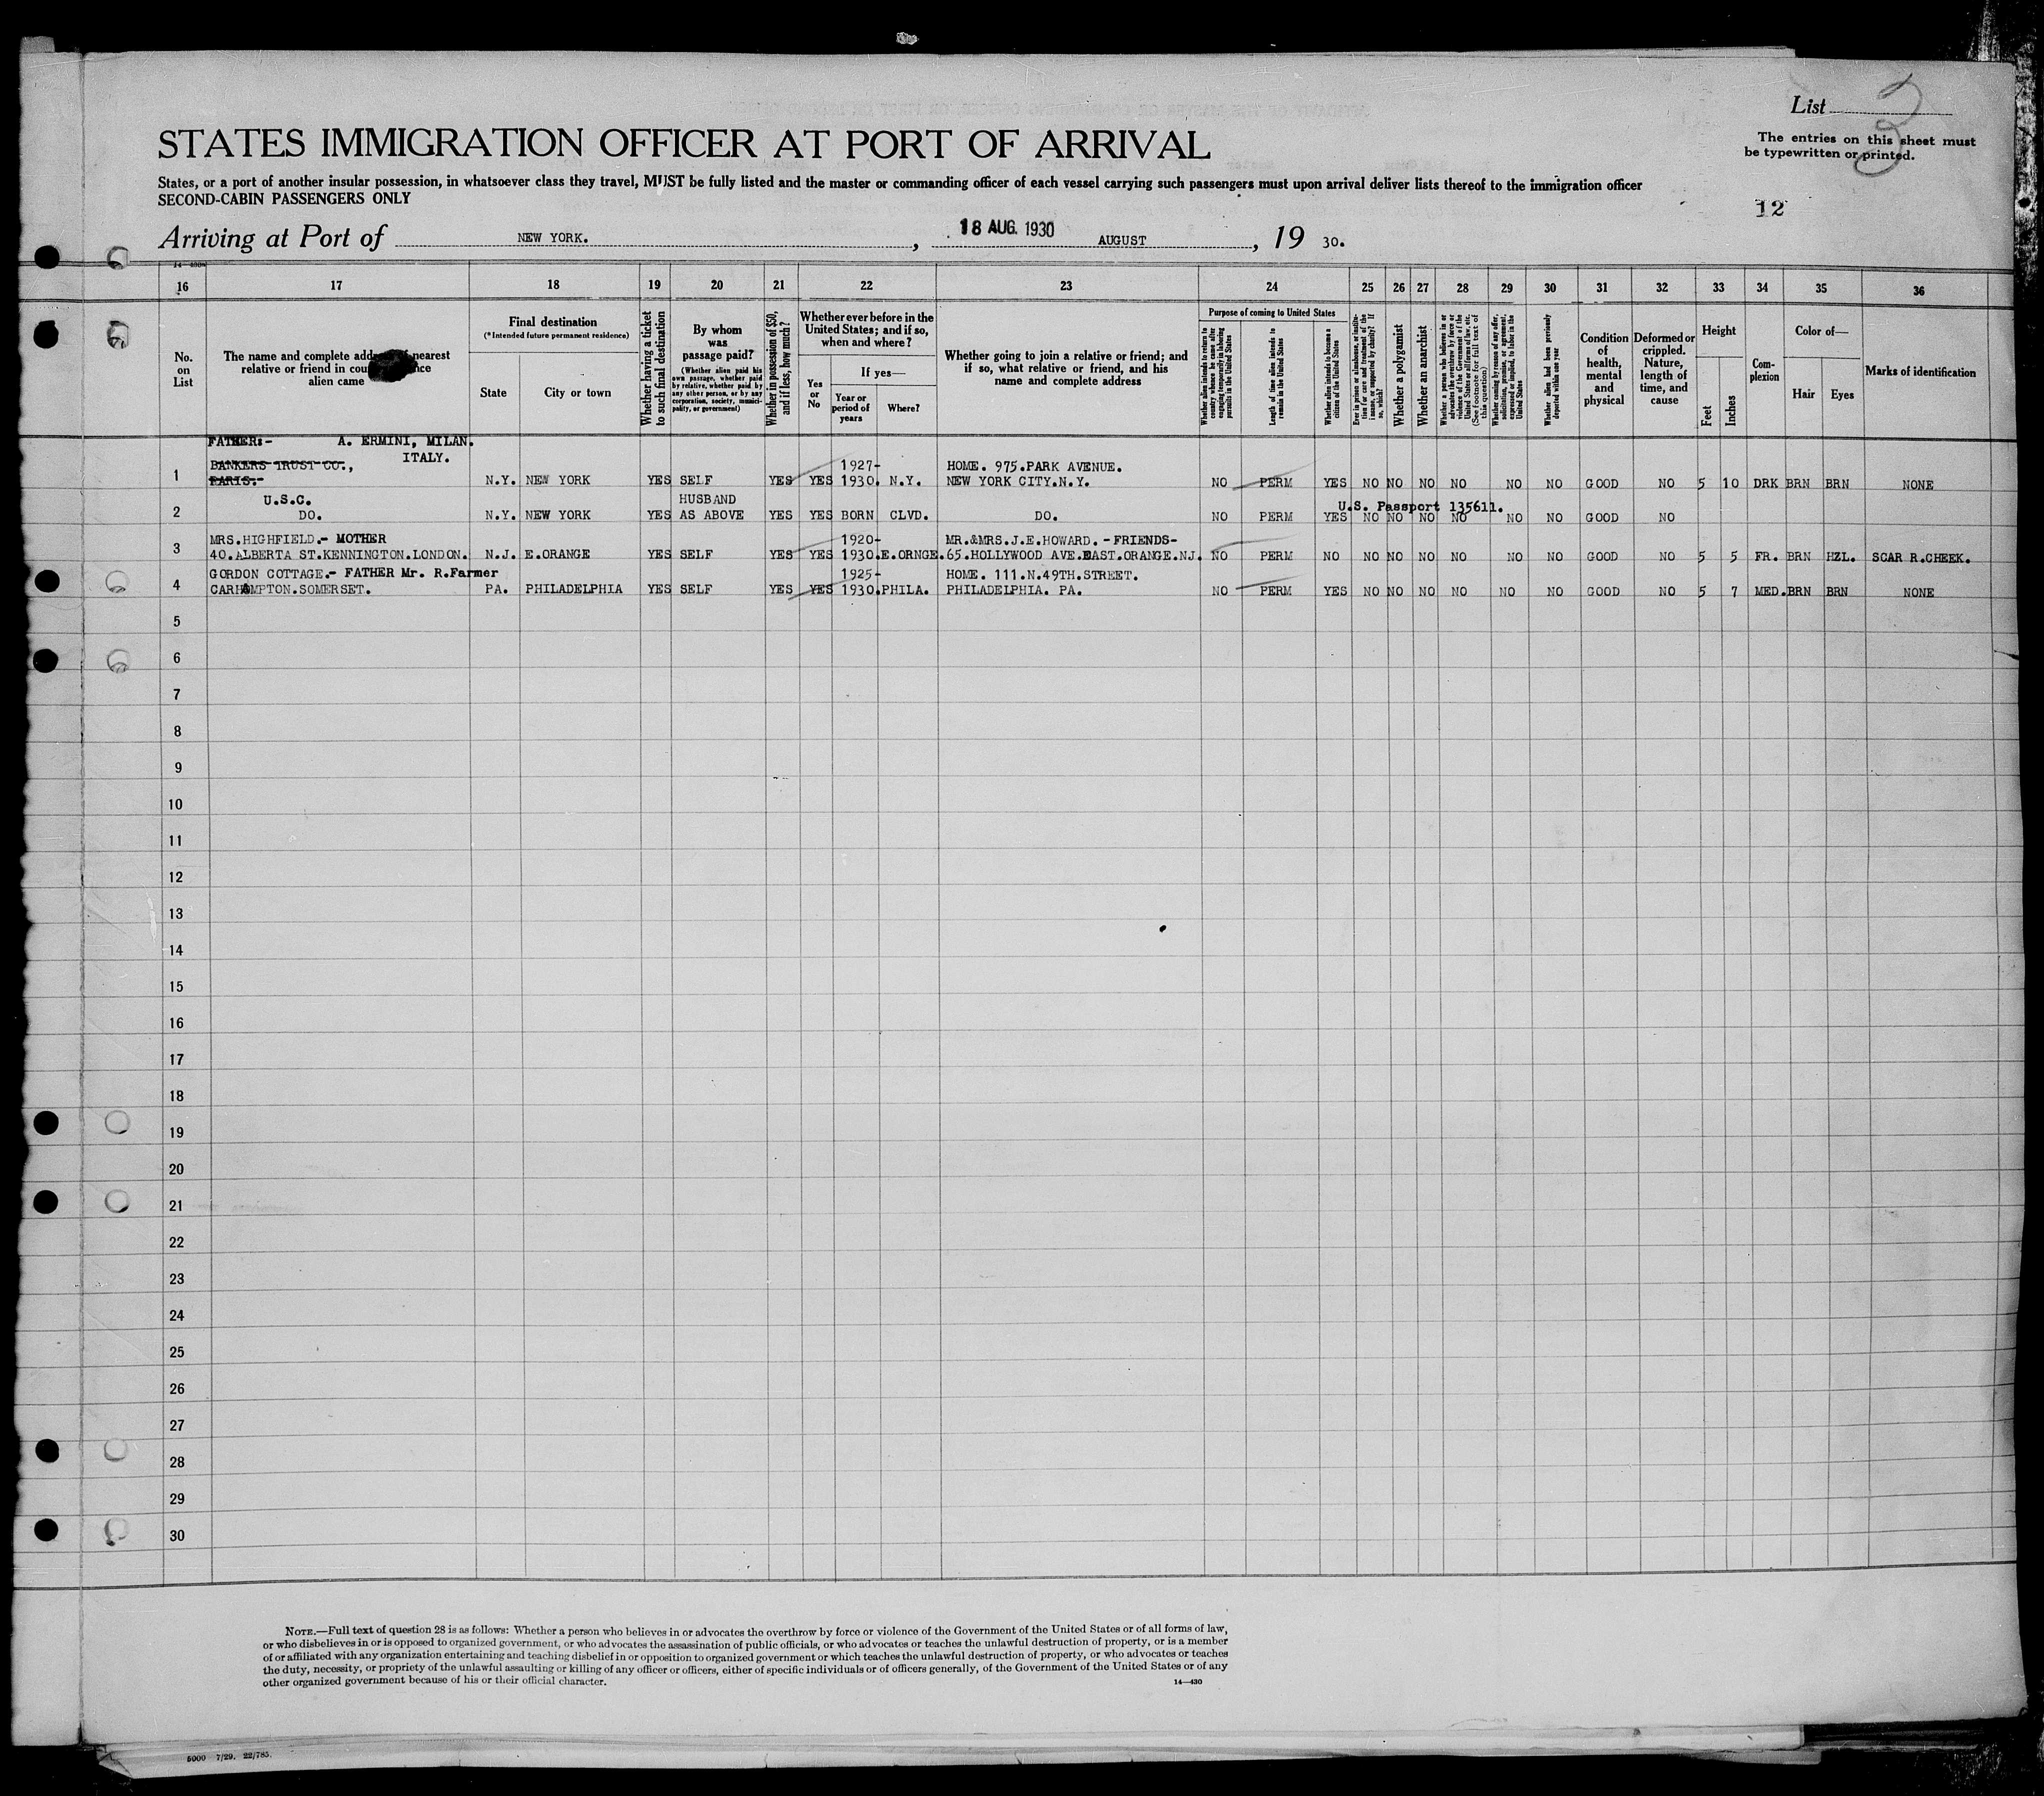 List
The entries on this sheet must
be typewritten or printed.
STATES IMMIGRATION OFFICER AT PORT OF ARRIVAL
States, or a port of another insular possession, in whatsoever class they travel, MUST be fully listed and the master or commanding officer of each vessel carrying such passengers must upon arrival deliver lists thereof to the immigration officer
SECOND-CABIN PASSENGERS ONLY
12
Arriving at Port of NEW YORK. , 18 AUG. 1930 AUGUST , 19 30.
16 17 18 19 20 21 22 23 24 25 26 27 28 29 30 31 32 33 34 35 36
No. on List
The name and complete address nearest
relative or friend in
alien came
Final destination
(*Intended future permanent residence)
State
City or town
Whether having a ticket to such final destination
By whom was passage paid?
(Whether alien paid his own passage, whether paid by relative, whether paid by any other person, or by any corporation, society, municipality, or government)
Whether in possession of $50, and if less, how much?
Whether ever before in the United States; and if so, when and where?
Yes or No
If yes—
Year or period of years
Where?
Whether going to join a relative or friend; and if so, what relative or friend, and his name and complete address
Purpose of coming to United States
Whether alien intends to return to country whence he came after engaging temporarily in laboring pursuits in the United States
Length of time alien intends to remain in the United States
Whether alien intends to become a citizen of the United States
Whether a polygamist
Whether an anarchist
Whether alien had been previously deported within one year
Condition of health, mental and physical
Deformed or crippled. Nature, length of time, and cause
Height
Feet
Inches
Complexion
Color of—
Hair
Eyes
Marks of identification
FATHER:- A. ERMINI, MILAN.
BANKERS TRUST CO., ITALY. 1927- HOME. 975.PARK AVENUE.
1 PARIS.- N.Y. NEW YORK YES SELF YES YES 1930. N.Y. NEW YORK CITY.N.Y. NO PERM YES NO NO NO NO NO NO GOOD NO 5 10 DRK BRN BRN NONE
U.S.C. HUSBAND U.S. Passport 135611.
2 DO. N.Y. NEW YORK YES AS ABOVE YES YES BORN CLVD. DO. NO PERM YES NO NO NO NO NO NO GOOD NO
MRS.HIGHFIELD.- MOTHER 1920- MR.&MRS.J.E.HOWARD. -FRIENDS-
3 40.ALBERTA ST.KENNINGTON.LONDON. N.J. E.ORANGE YES SELF YES YES 1930.E.ORNGE. 65.HOLLYWOOD AVE.EAST.ORANGE.NJ. NO PERM NO NO NO NO NO NO NO GOOD NO 5 5 FR. BRN HZL. SCAR R.CHEEK.
GORDON COTTAGE.- FATHER Mr. R.Farmer 1925- HOME. 111.N.49TH.STREET.
4 CARHAMPTON.SOMERSET. PA. PHILADELPHIA YES SELF YES YES 1930.PHILA. PHILADELPHIA. PA. NO PERM YES NO NO NO NO NO NO GOOD NO 5 7 MED. BRN BRN NONE
5
6
7
8
9
10
11
12
13
14
15
16
17
18
19
20
21
22
23
24
25
26
27
28
29
30
NOTE.—Full text of question 28 is as follows: Whether a person who believes in or advocates the overthrow by force or violence of the Government of the United States or of all forms of law,
or who disbelieves in or is opposed to organized government, or who advocates the assassination of public officials, or who advocates or teaches the unlawful destruction of property, or is a member
of or affiliated with any organization entertaining and teaching disbelief in or opposition to organized government or which teaches the unlawful destruction of property, or who advocates or teaches
the duty, necessity, or propriety of the unlawful assaulting or killing of any officer or officers, either of specific individuals or of officers generally, of the Government of the United States or of any
other organized government because of his or their official character.
14—430
5000 7/29. 22/785.